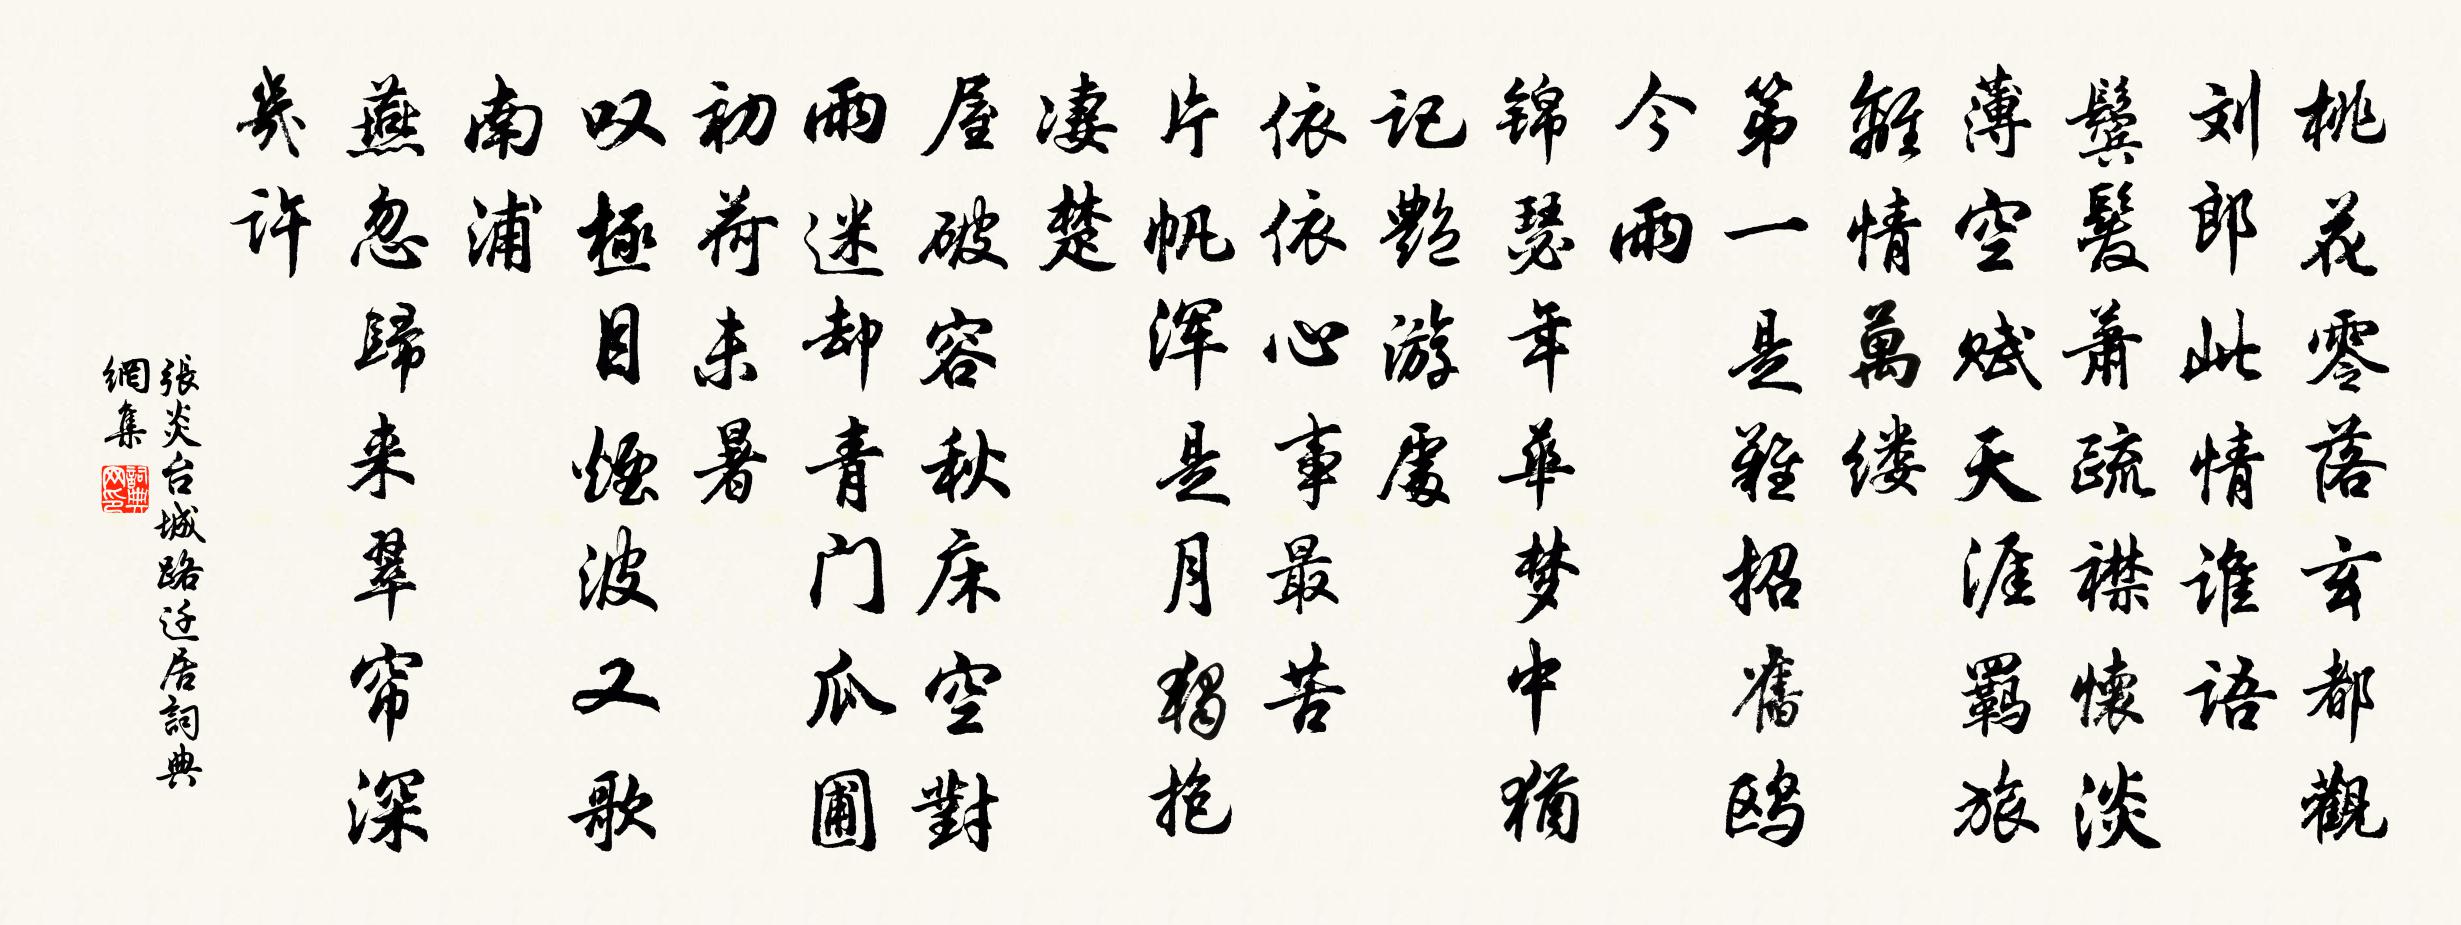 桃花零落玄都觀
刘郎此情谁语
鬓髮萧疏襟懷淡
薄空赋天涯羁旅
離情萬缕
第一是難招舊鸥
今雨
锦瑟年华梦中猶
记艷游處
依依心事最苦
片帆浑是月独抱
凄楚
屋破容秋床空對
雨迷却青门瓜圃
初荷未暑
叹極目煙波又歌
南浦
燕忽歸来翠帘深
幾许
張炎台城路迁居詞典
網集
詞典网印